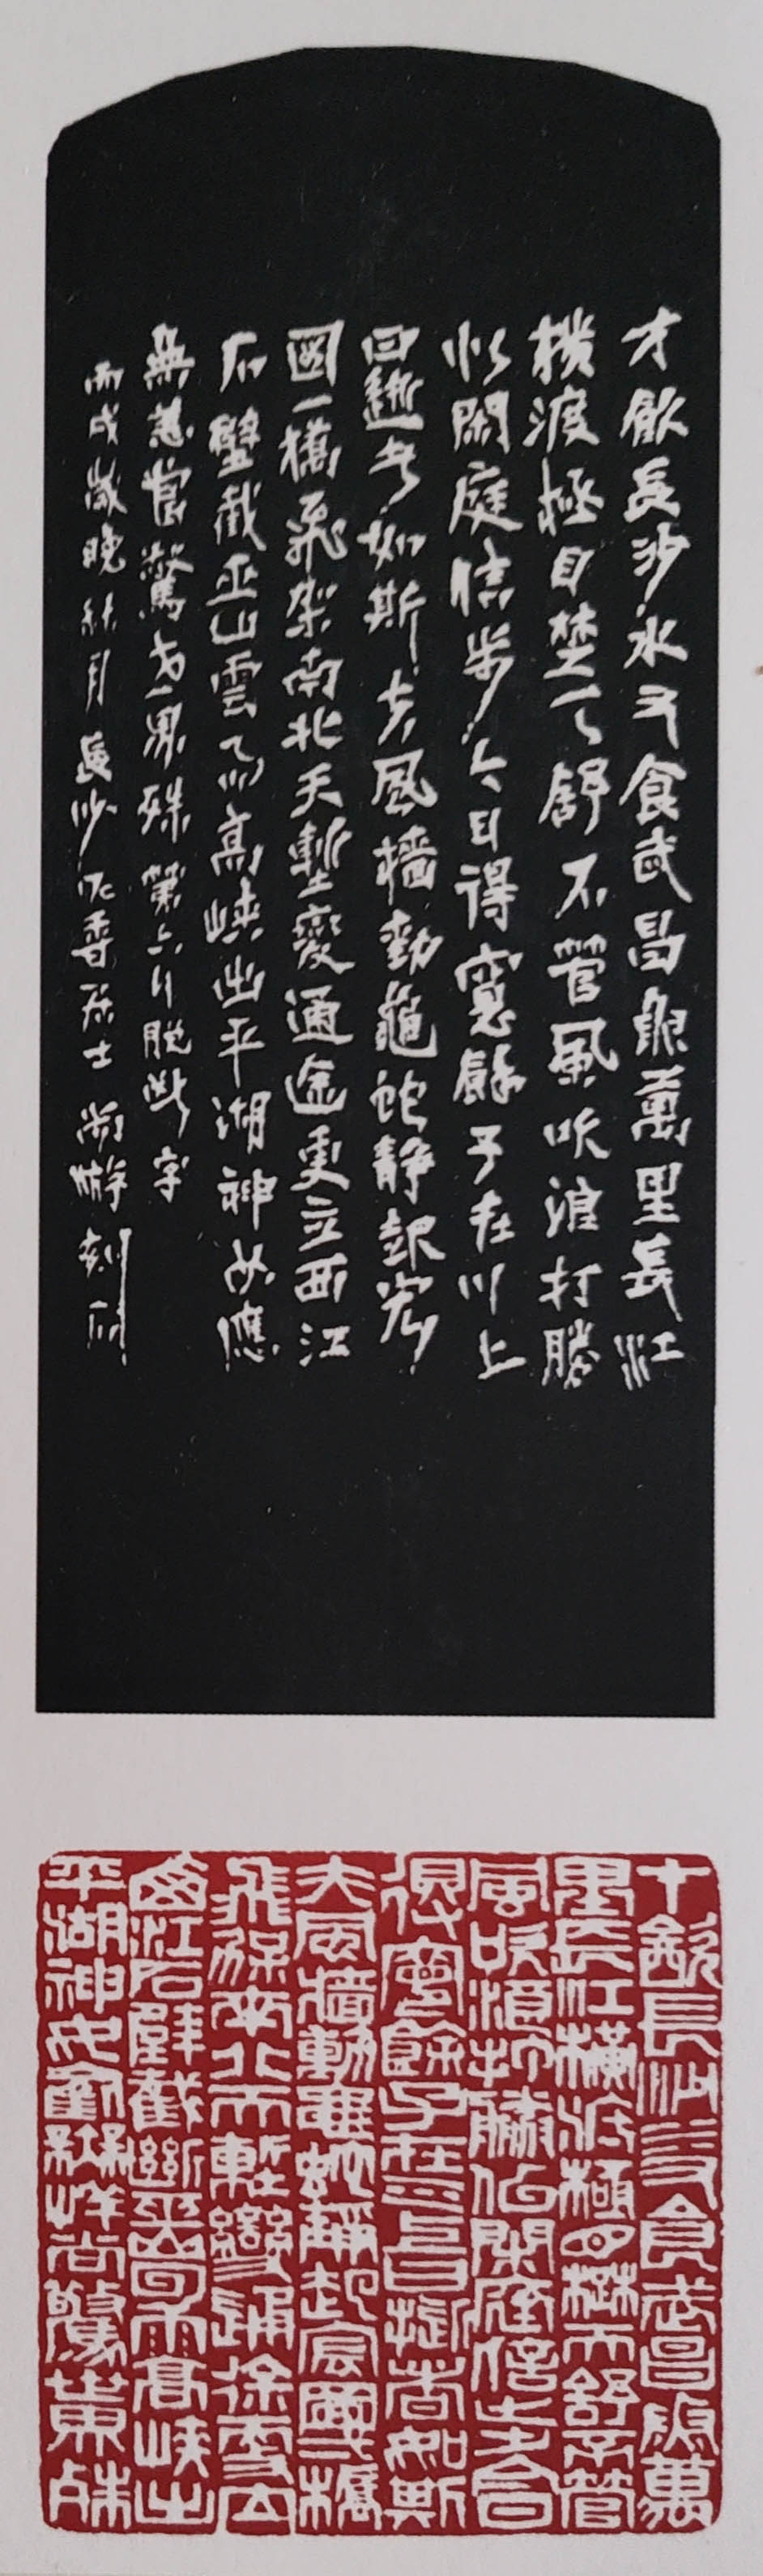 才飲長沙水又食武昌魚萬里長江
橫渡極目楚天舒不管風吹浪打勝
似閑庭信步今日得寬餘子在川上
曰逝者如斯夫風檣動龜蛇靜起宏
圖一橋飛架南北天塹變通途更立西江
石壁截巫山雲雨高峽出平湖神女應
無恙當驚世界殊第六行脫此字
丙戌歲晚月長沙居士刻石
才飲長沙水又食武昌魚萬
里長江橫渡極目楚天舒不管
風吹浪打勝似閑庭信步今
得寬餘子在川上曰逝者如斯
夫風檣動龜蛇靜起宏圖一橋
飛架南北天塹變通途更立
西江石壁截斷巫山雲雨高峽出
平湖神女應無恙當驚世界殊